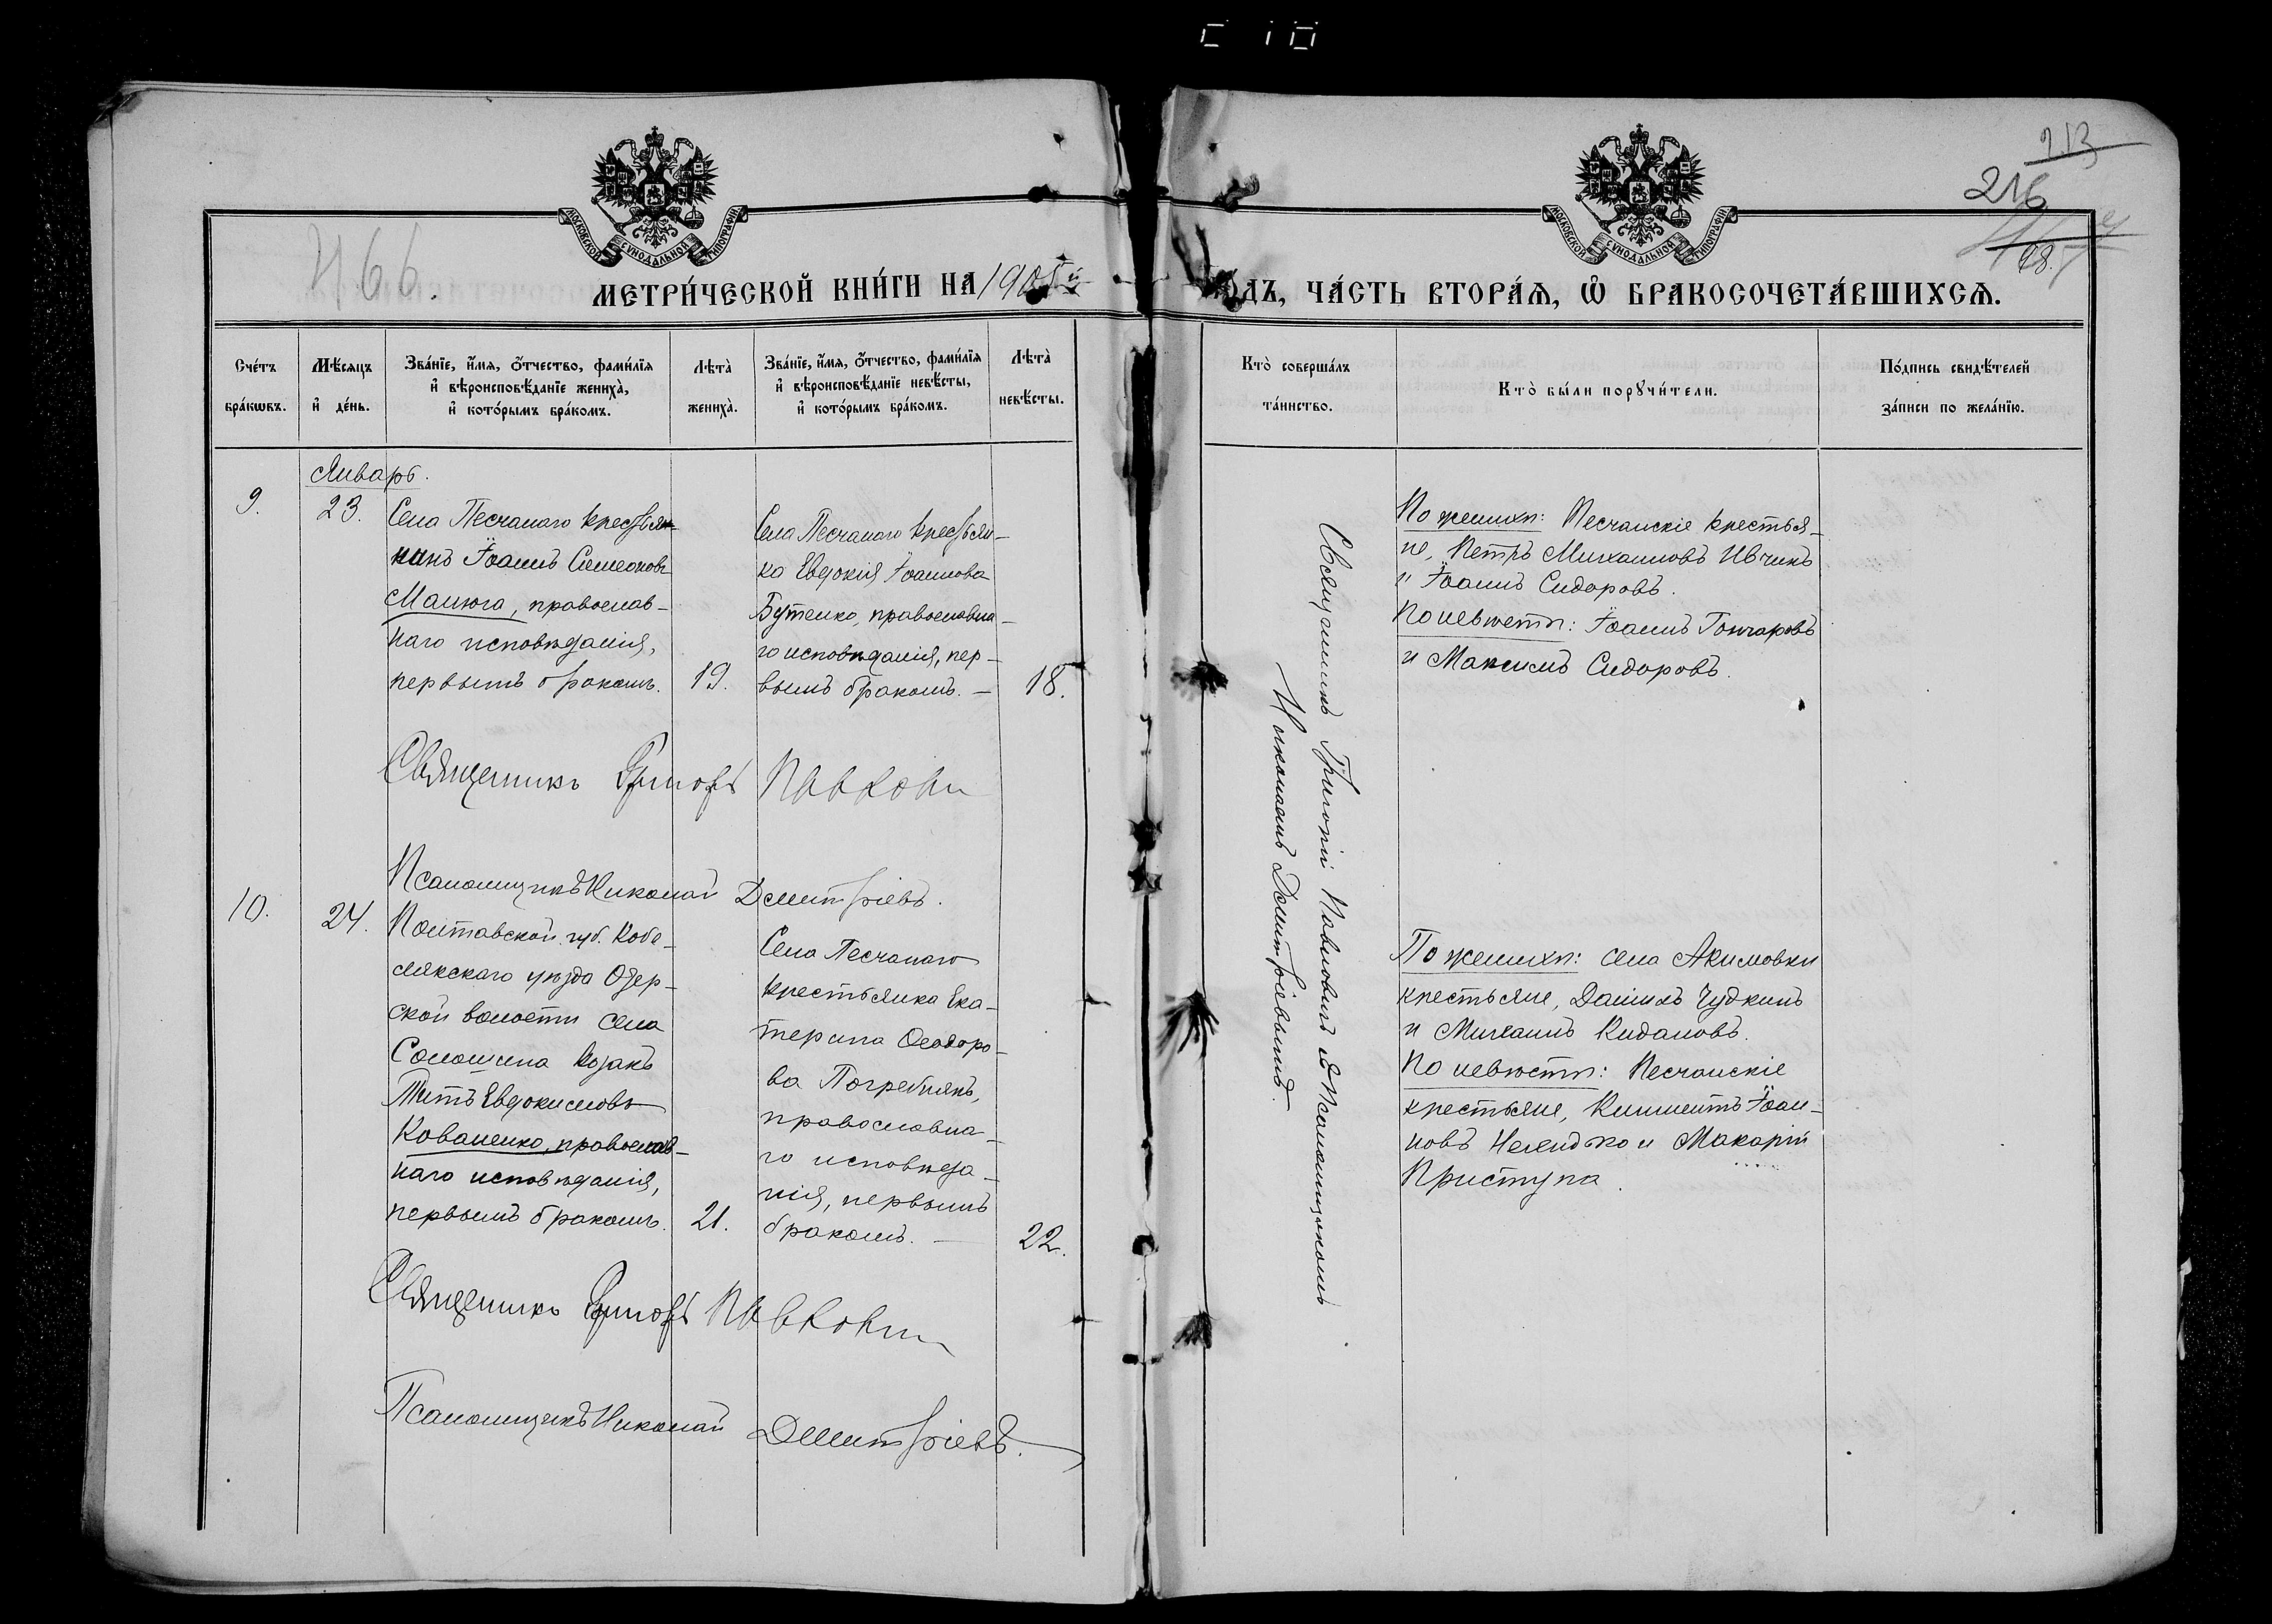 213
216
98.
466.
МОСКОВСКОЙ СУНОДАЛЬНОЙ ТИПОГРАФІИ
МОСКОВСКОЙ СУНОДАЛЬНОЙ ТИПОГРАФІИ
МЕТРИ́ЧЕСКОЙ КНИ́ГИ НА 1905й
ГОДЪ, ЧА́СТЬ ВТОРА́Ѧ, Ѽ БРАКОСОЧЕТА́ВШИХСѦ.
Сче́тъ бра́кѡвъ.
Мѣ́сѧцъ и҆ де́нь.
Зва́нїе, и҆́мѧ, ѻ҆́тчество, фами́лїѧ
и҆ вѣроисповѣ́данїе женихà,
и҆ кото́рымъ бра́комъ.
Лѣ́та̀ женихà.
Зва́нїе, и҆́мѧ, ѻ҆́тчество, фами́лїѧ
и҆ вѣроисповѣ́данїе невѣ́сты,
и҆ кото́рымъ бра́комъ.
Лѣ́та̀ невѣ́сты.
Кто̀ соверша́лъ
та́инство.
Кто̀ бы́ли порꙋчи́тели.
По́дпись свидѣ́телей
за́писи по жела́нїю.
Январь.
9.
23.
Села Песчанаго крестья-
нинъ Іоаннъ Симеоновъ
Манюга, православ-
наго исповѣданія,
первымъ бракомъ.
19.
Села Песчанаго крестьян-
ка Евдокія Іоаннова
Бутенко, православна-
го исповѣданія, пер-
вымъ бракомъ. —
18.
Священникъ Григорій Павловичъ съ Псаломщикомъ
Николаемъ Дмитріевымъ.
По женихѣ: Песчанскіе крестья-
не, Петръ Михаиловъ Ивчинъ
и Іоаннъ Сидоровъ.
По невѣстѣ: Іоаннъ Гончаровъ
и Максимъ Сидоровъ.
Священникъ Григорій Павлович
Псаломщикъ Николай Дмитріевъ.
10.
24.
Полтавской губ. Кобе-
лякскаго уѣзда Озер-
ской волости села
Солошина козакъ
Титъ Евдокимовъ
Коваленко, православ-
наго исповѣданія,
первымъ бракомъ.
21.
Села Песчанаго
крестьянка Ека-
терина Ѳеодоро-
ва Погребнякъ,
православна-
го исповѣда-
нія, первымъ
бракомъ. —
22.
По женихѣ: села Акимовки
крестьяне, Даніилъ Чудкинъ
и Михаилъ Кидановъ.
По невѣстѣ: Песчанскіе
крестьяне, Климентъ Іоан-
новъ и Макарій
Приступа.
Священникъ Григорій Павлович
Псаломщикъ Николай Дмитріевъ.